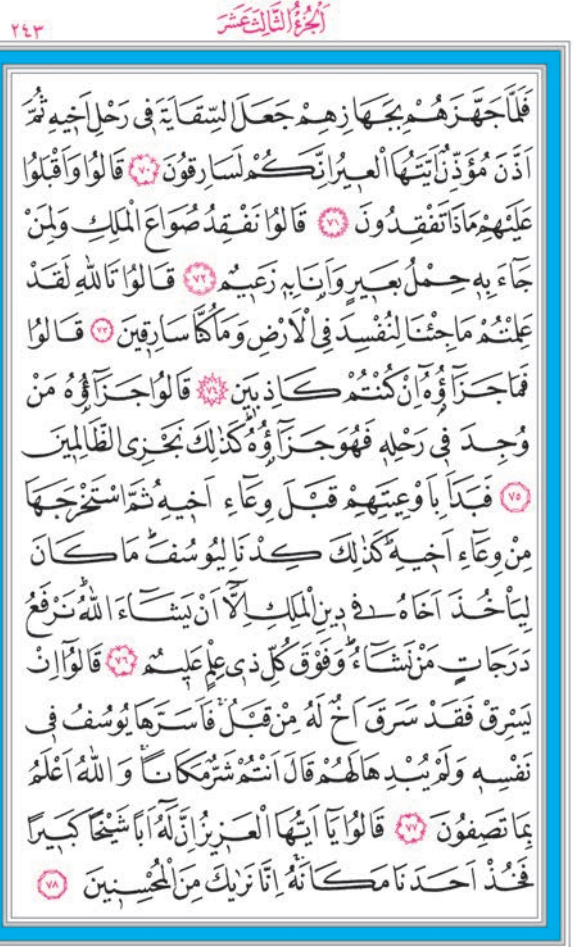 ٢٤٣ اَلْجُزْءُ الثَّالِثَ عَشَرَ
فَلَمَّا جَهَّزَهُمْ بِجَهَازِهِمْ جَعَلَ السِّقَايَةَ فٖى رَحْلِ اَخٖيهِ ثُمَّ
اَذَّنَ مُؤَذِّنٌ اَيَّتُهَا الْعٖيرُ اِنَّكُمْ لَسَارِقُونَ ﴿٧٠﴾ قَالُوا وَاَقْبَلُوا
عَلَيْهِمْ مَاذَا تَفْقِدُونَ ﴿٧١﴾ قَالُوا نَفْقِدُ صُوَاعَ الْمَلِكِ وَلِمَنْ
جَٓاءَ بِهٖ حِمْلُ بَعٖيرٍ وَاَنَا بِهٖ زَعٖيمٌ ﴿٧٢﴾ قَالُوا تَاللّٰهِ لَقَدْ
عَلِمْتُمْ مَا جِئْنَا لِنُفْسِدَ فِى الْاَرْضِ وَمَا كُنَّا سَارِقٖينَ ﴿٧٣﴾ قَالُوا
فَمَا جَزَٓاؤُ۬هُٓ اِنْ كُنْتُمْ كَاذِبٖينَ ﴿٧٤﴾ قَالُوا جَزَٓاؤُ۬هُ مَنْ
وُجِدَ فٖى رَحْلِهٖ فَهُوَ جَزَٓاؤُ۬هُؕ كَذٰلِكَ نَجْزِى الظَّالِمٖينَ
﴿٧٥﴾ فَبَدَاَ بِاَوْعِيَتِهِمْ قَبْلَ وِعَٓاءِ اَخٖيهِ ثُمَّ اسْتَخْرَجَهَا
مِنْ وِعَٓاءِ اَخٖيهِؕ كَذٰلِكَ كِدْنَا لِيُوسُفَؕ مَا كَانَ
لِيَأْخُذَ اَخَاهُ فٖى دٖينِ الْمَلِكِ اِلَّٓا اَنْ يَشَٓاءَ اللّٰهُؕ نَرْفَعُ
دَرَجَاتٍ مَنْ نَشَٓاءُؕ وَفَوْقَ كُلِّ ذٖى عِلْمٍ عَلٖيمٌ ﴿٧٦﴾ قَالُٓوا اِنْ
يَسْرِقْ فَقَدْ سَرَقَ اَخٌ لَهُ مِنْ قَبْلُۚ فَاَسَرَّهَا يُوسُفُ فٖى
نَفْسِهٖ وَلَمْ يُبْدِهَا لَهُمْۚ قَالَ اَنْتُمْ شَرٌّ مَكَانًاۚ وَاللّٰهُ اَعْلَمُ
بِمَا تَصِفُونَ ﴿٧٧﴾ قَالُوا يَٓا اَيُّهَا الْعَزٖيزُ اِنَّ لَهُٓ اَبًا شَيْخًا كَبٖيرًا
فَخُذْ اَحَدَنَا مَكَانَهُۚ اِنَّا نَرٰيكَ مِنَ الْمُحْسِنٖينَ ﴿٧٨﴾